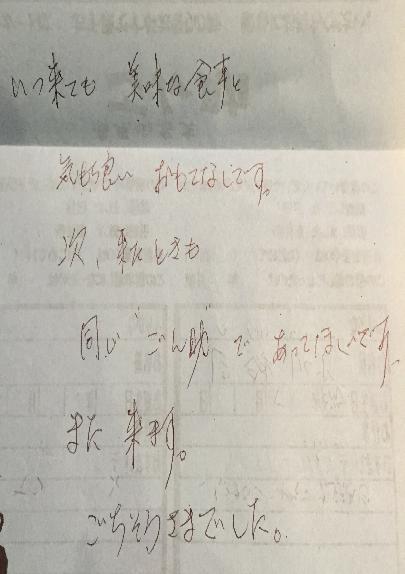 いつ来ても 美味な食事と
気持ち良い おもてなしです。
次、来たときも
同じ"ごん助"で あってほしいです。
また 来ます。
ごちそうさまでした。